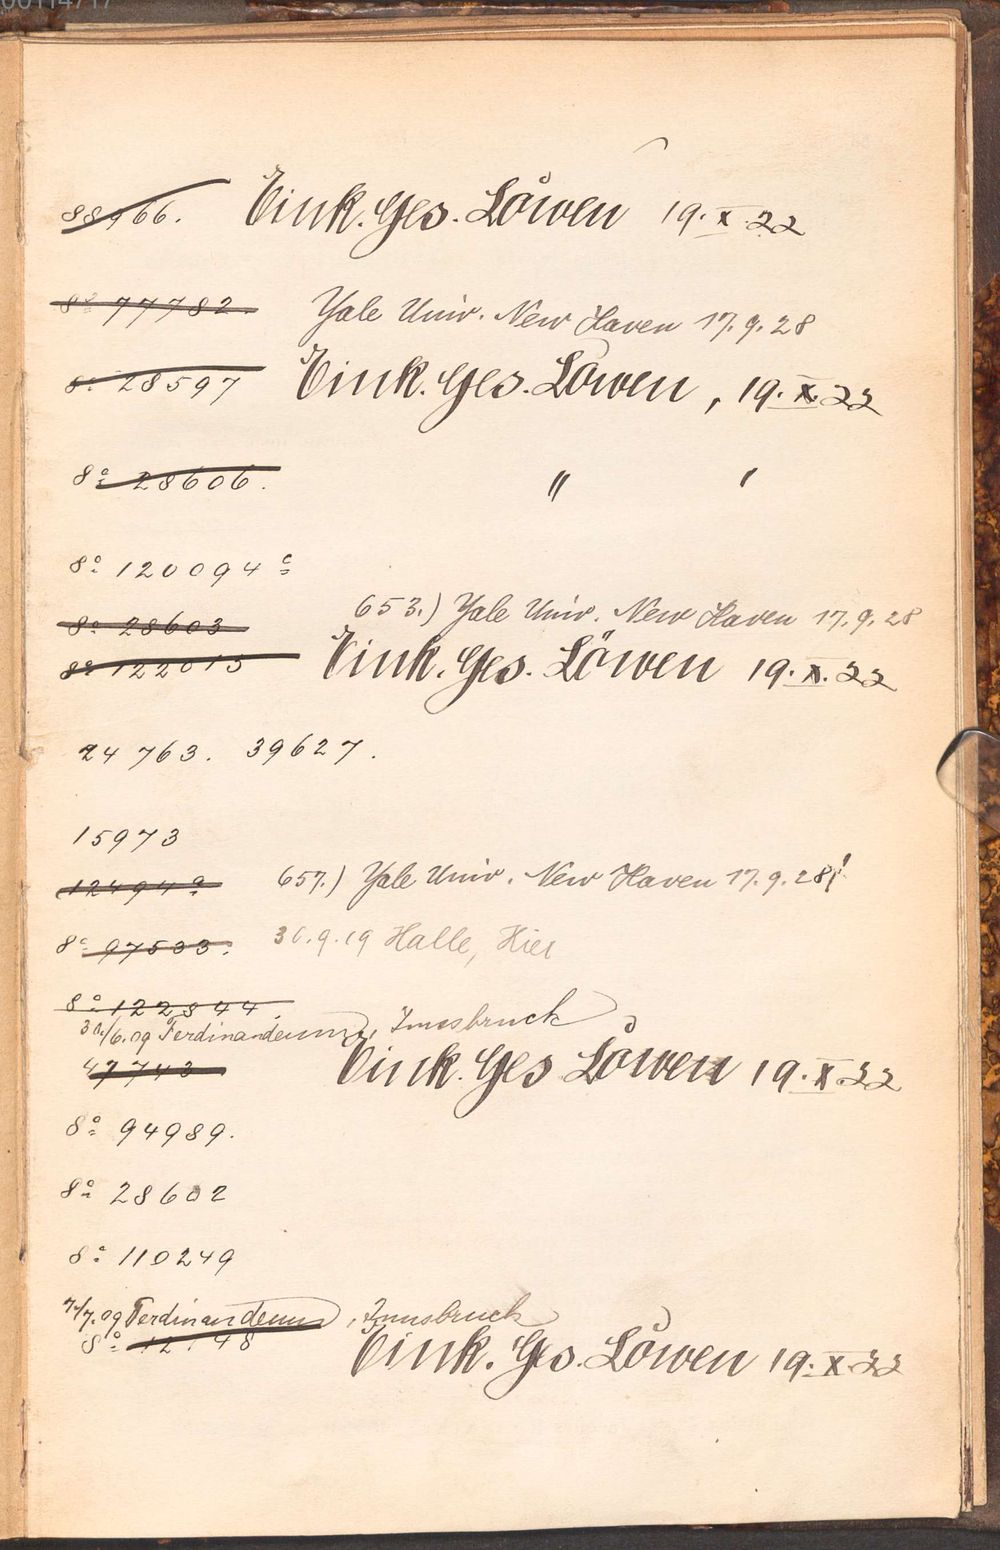 00114717
88966. Eink. Ges. Löwen 19. X. 22
8° 77782. Yale Univ. New Haven 17. 9. 28
8° 28597 Eink. Ges. Löwen, 19. X. 22
8° 28606. " "
8° 120094 c
653.) Yale Univ. New Haven 17. 9. 28
8° 28603
8° 122015 Eink. Ges. Löwen 19. X. 22
24 763. 39627.
15973
12494 a 657.) Yale Univ. New Haven 17. 9. 28!
8° 97533. 30.9.19 Halle, Hier
8° 122844.
30./6.09 Ferdinandeum, Innsbruck
47743 Eink. Ges Löwen 19. X. 22
8° 94989.
8° 28602
8° 110249
7./7.09 Ferdinandeum, Innsbruck
8° Eink. Ges. Löwen 19. X. 22